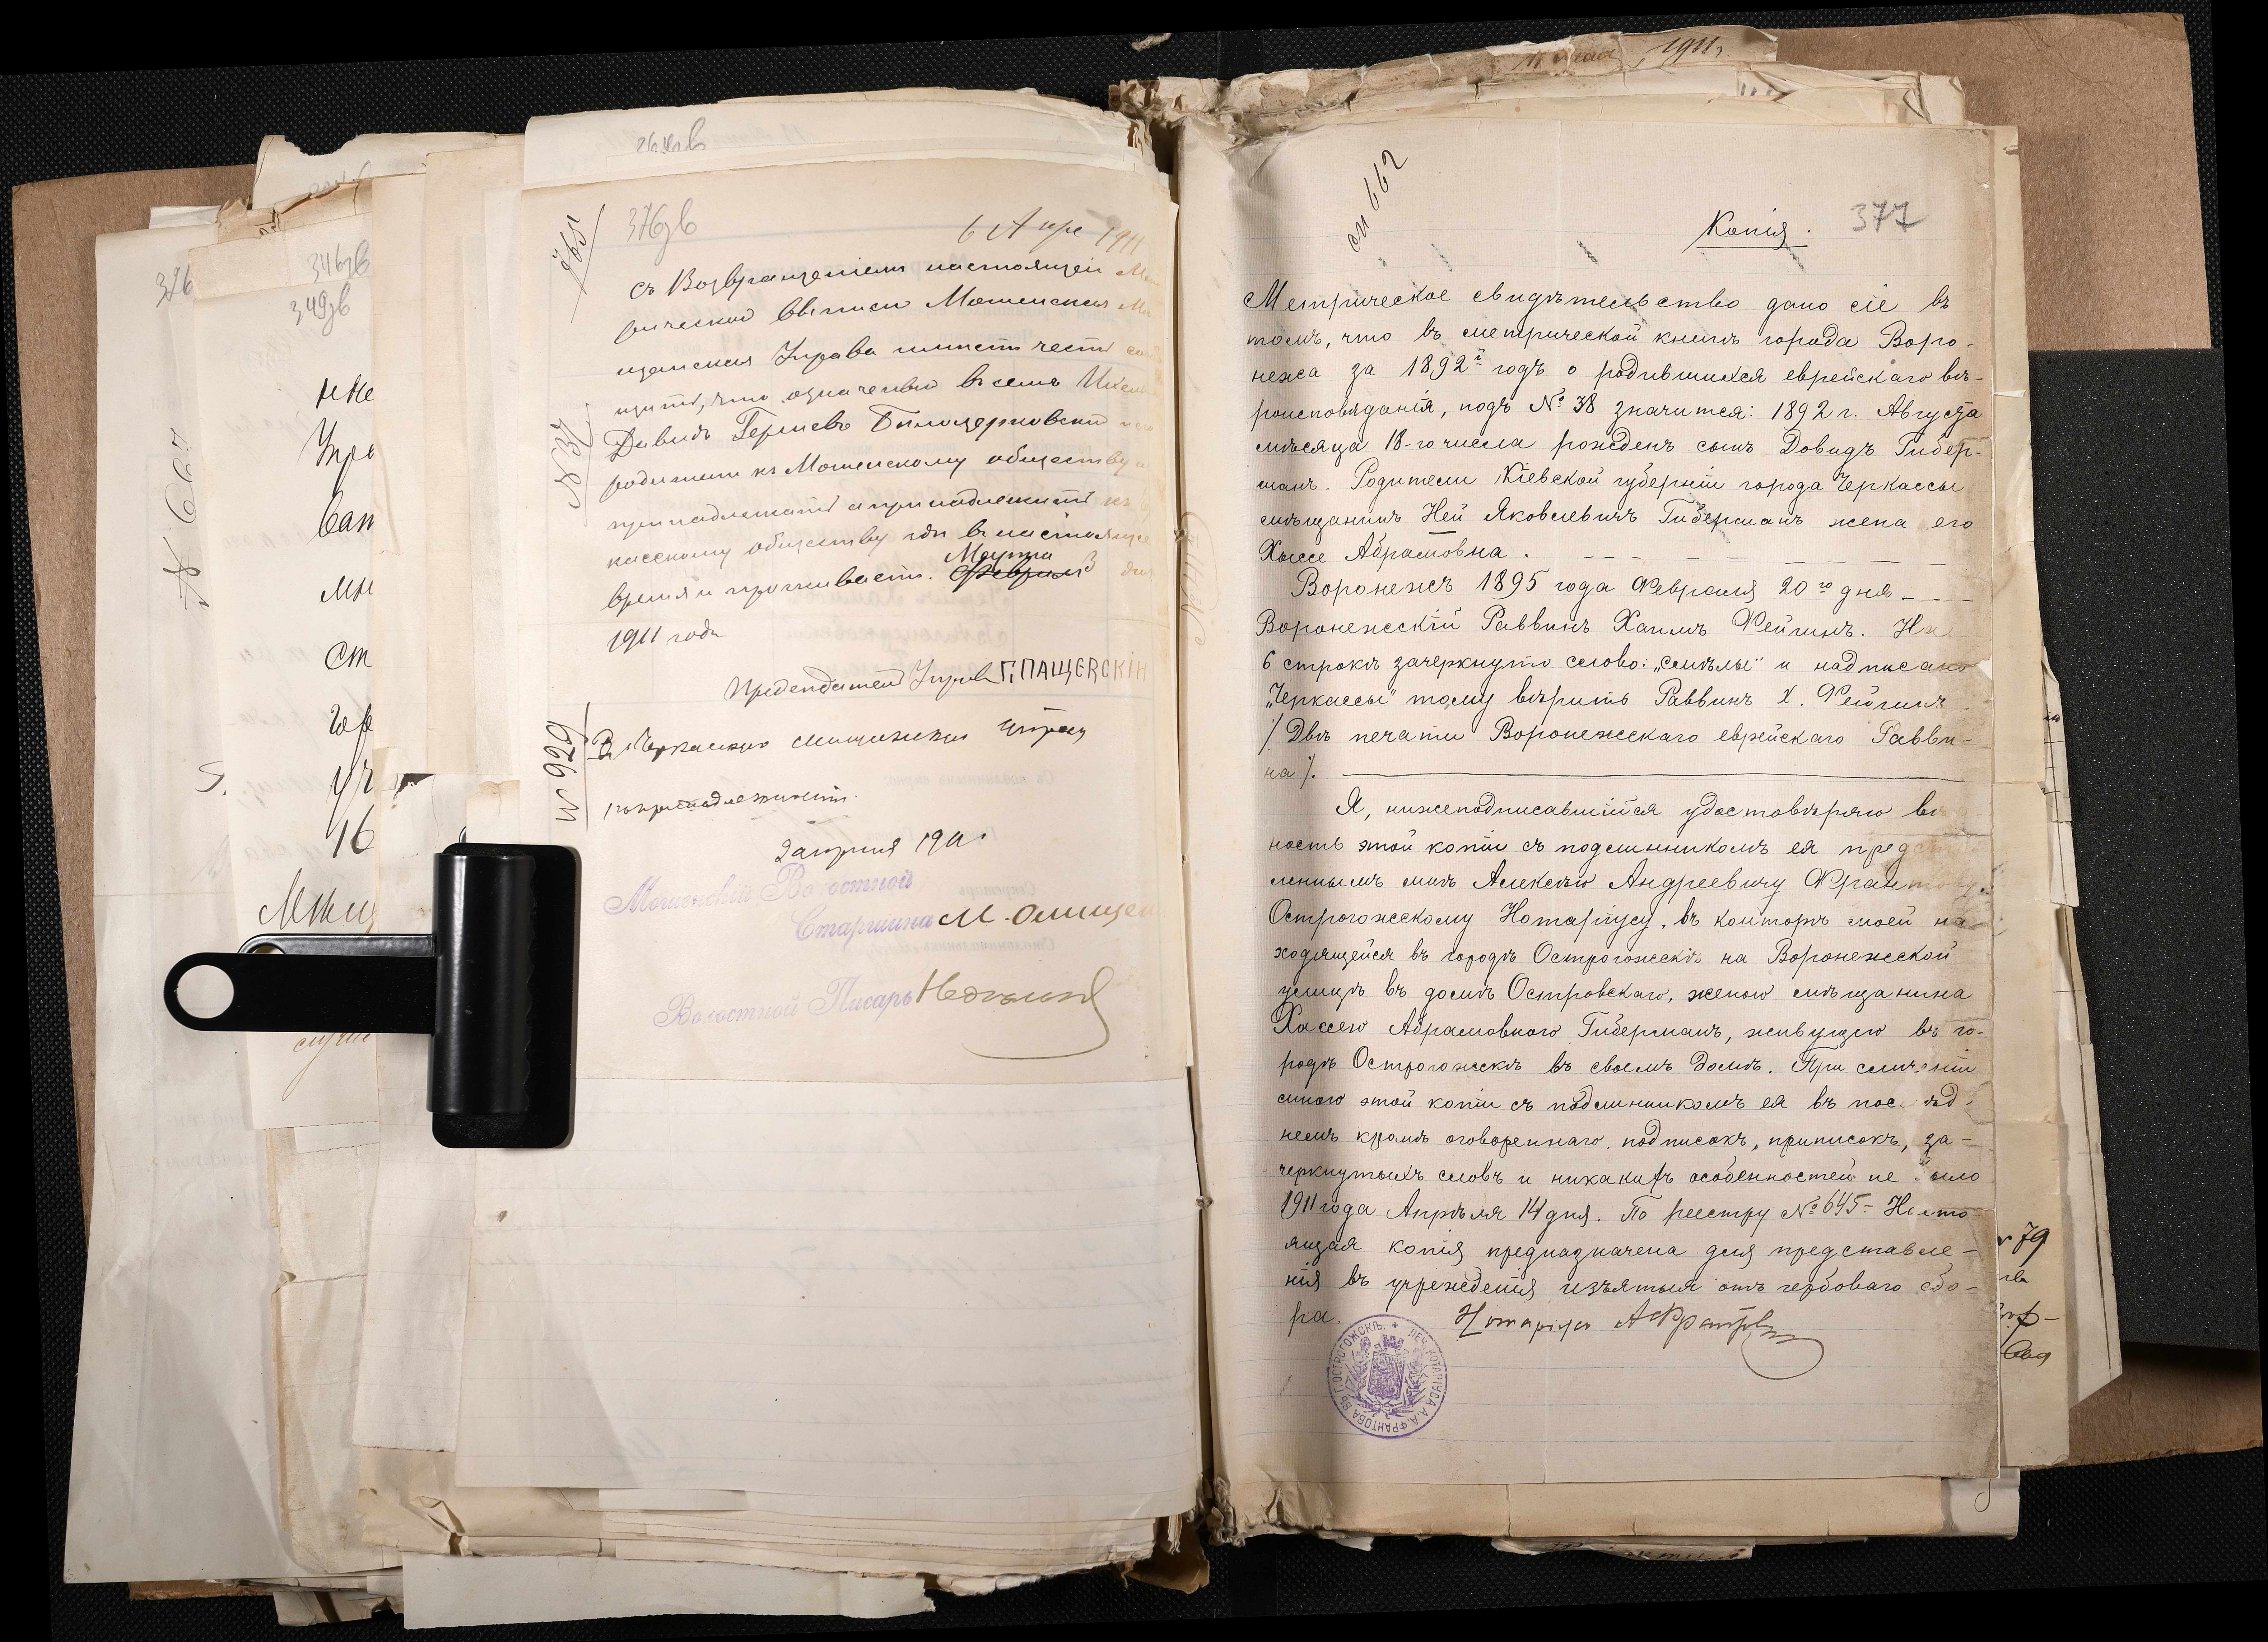 376зв
6 Апре 1911
съ Возвращеніемъ настоящей
рической выписи Мошенская
щанская Управа имѣетъ честь
щить, что означеный въ семъ
Давидъ Гершевъ Бѣлоцерковскій
родители къ Мошенскому обществу
принадлежатъ а принадлежитъ
касскому обществу гдѣ въ настоящее
время и проживаетъ. Марта 3 дня
1911 года
Предсѣдатель Управы Г. ПАЩЕВСКІЙ
№ 37
№ 626
Въ Черкасскую мѣщанскую управу
по принадлежности.
2 апрѣля 1911
Мошенскій Волостной
Старшина М. Онищен
Волостной Писарь
376
346зв
349зв
№ 667
см 662
Копія.
377
Метрическое свидѣтельство дано сіе въ
томъ, что въ метрической книгѣ города Воро-
нежа за 1892й годъ о родившихся еврейскаго вѣ-
роисповѣданія, подъ № 38 значится: 1892 г. Августа
мѣсяца 18-го числа рожденъ сынъ Довидъ Гибер-
манъ. Родители Кіевской губерніи города Черкассы
мѣщанинъ Ней Яковлевичъ Гиберманъ жена его
Хысе Абрамовна.
Воронежъ 1895 года Февраля 20го дня
Воронежскій Раввинъ Хаимъ Фейгинъ. На
6 строкѣ зачеркнуто слово: „смѣлы" и надписано
„Черкассы" тому вѣрить Раввинъ Х. Фейгинъ
/. Двѣ печати Воронежскаго еврейскаго Равви-
на /.
Я, нижеподписавшійся удостовѣряю вѣр
ность этой копіи съ подлинникомъ ея предста
леннымъ мнѣ Алексѣю Андреевичу Франтову,
Острогожскому Нотаріусу, въ конторѣ моей на-
ходящейся въ городѣ Острогожскѣ на Воронежской
улицѣ въ домѣ Островскаго, женою мѣщанина
Хасею Абрамовною Гиберманъ, живущею въ го-
родѣ Острогожскѣ въ своемъ домѣ. При сличеніи
мною этой копіи съ подлинникомъ ея въ послѣд-
немъ кромѣ оговореннаго подписокъ, приписокъ, за-
черкнутыхъ словъ и никакихъ особенностей не было
1911 года Апрѣля 14 дня. По реестру № 645 - Насто
ящая копія предназначена для представле-
нія въ учрежденія изъятыя отъ гербоваго сбо-
ра.
Нотаріусъ АФрантовъ
ПЕЧ. НОТАРІУСА А.А. ФРАНТОВА ВЪ Г. ОСТРОГОЖСКѢ.